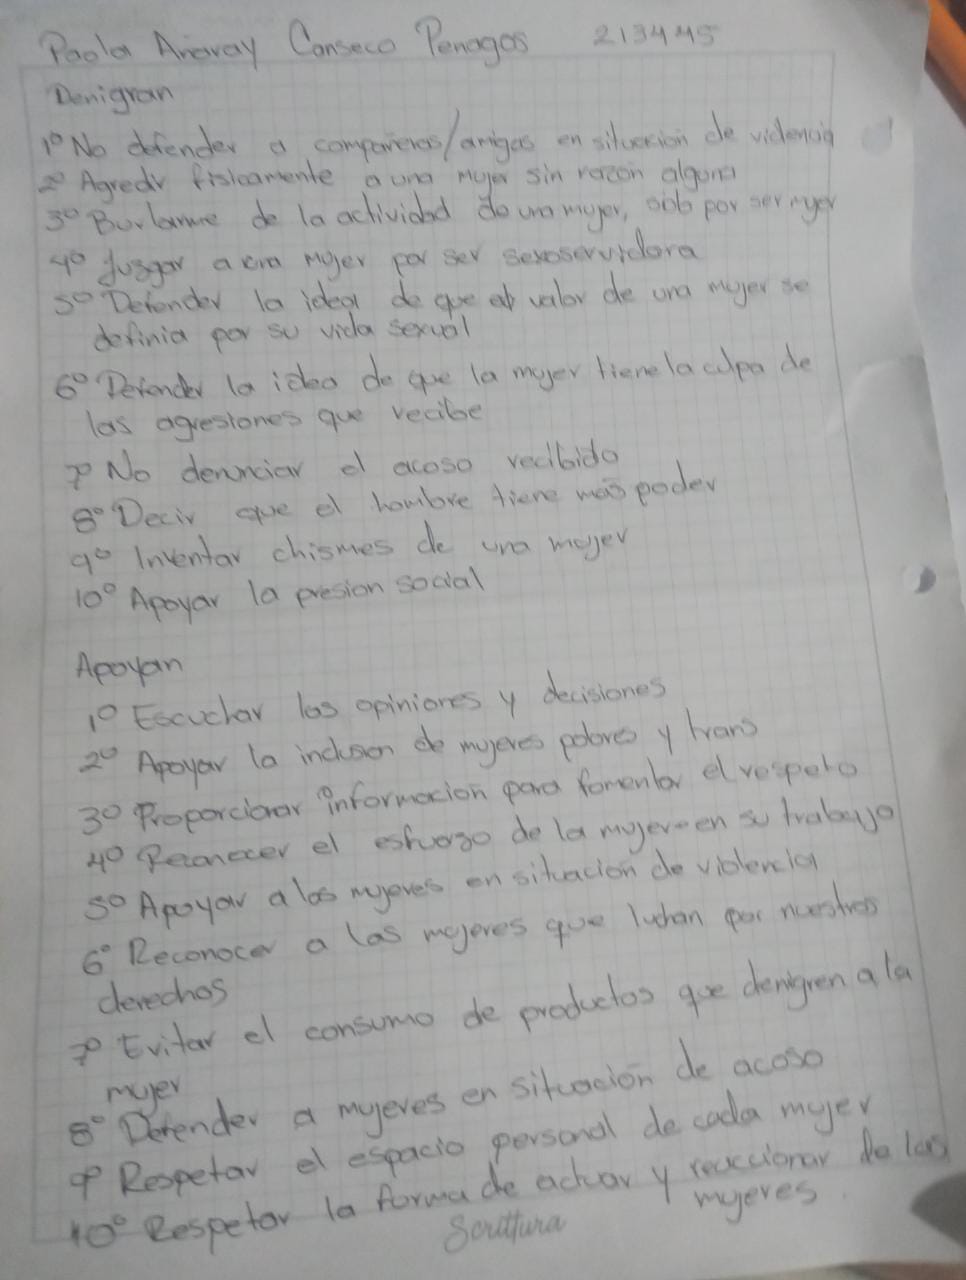 Paola Anavay Canseco Penagos 213445
Denigran
1º No defender a compañeras/amigas en situación de violencia
2º Agredir fisicamente a una mujer sin razón alguna
3º Burlarme de la actividad de una mujer, solo por ser mujer
4º Juzgar a una mujer por ser sexoservidora
5º Defender la idea de que el valor de una mujer se
definia por su vida sexual
6º Defender la idea de que la mujer tiene la culpa de
las agresiones que recibe
7º No denunciar el acoso recibido
8º Decir que el hombre tiene más poder
9º Inventar chismes de una mujer
10º Apoyar la presion social
Apoyan
1º Escuchar las opiniones y decisiones
2º Apoyar la inclusion de mujeres pobres y trans
3º Proporcionar información para fomentar el respeto
4º Reconocer el esfuerzo de la mujer en su trabajo
5º Apoyar a las mujeres en situación de violencia
6º Reconocer a las mujeres que luchan por nuestros
derechos
7º Evitar el consumo de productos que denigren a la
mujer
8º Defender a mujeres en situación de acoso
9º Respetar el espacio personal de cada mujer
10º Respetar la forma de actuar y reaccionar de las
mujeres.
Scrittura